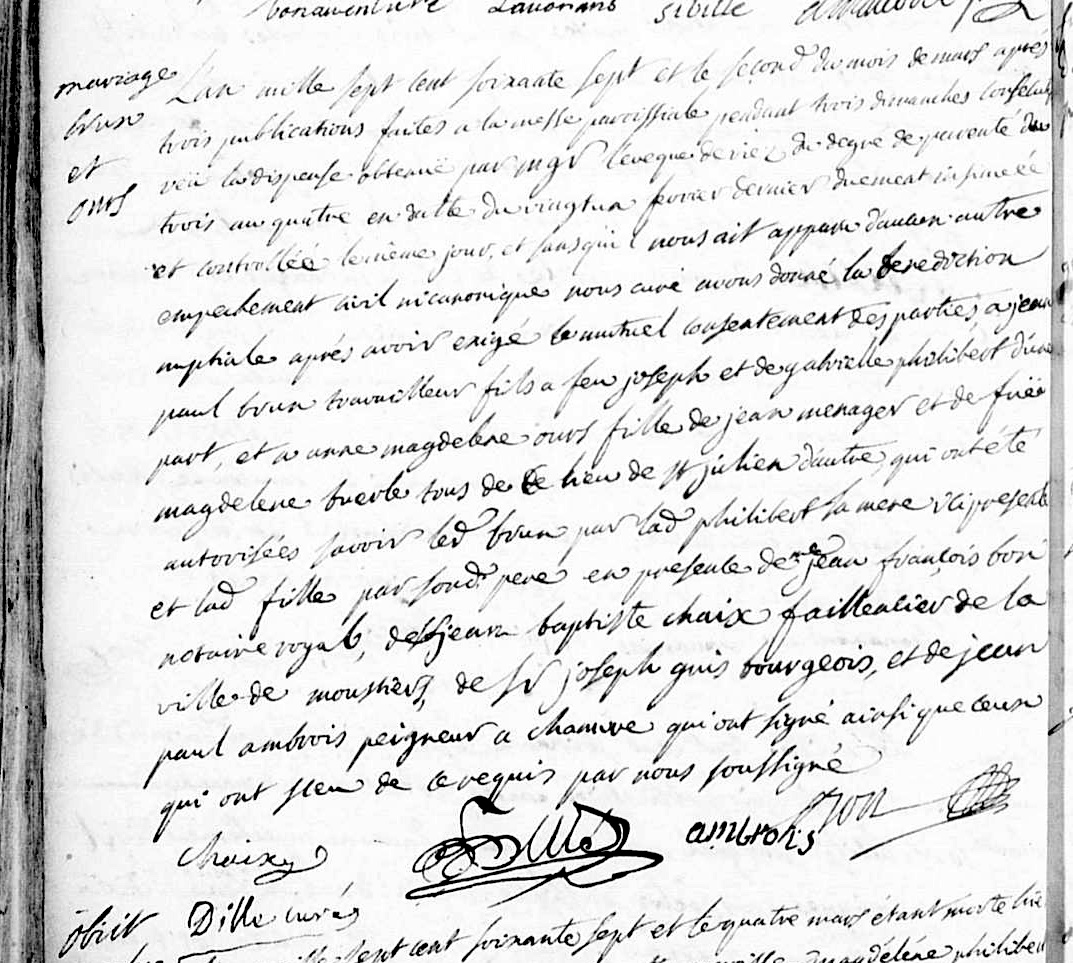 bonaventure sibille
mariage
brun
et
ours
L'an mille sept cent soixante sept et le second du mois de mars aprés
trois publications faites a la messe paroissiale pendant trois dimanches consecutifs
veü la dispense obtenuë par mgr l'eveque de riez du degré de parenté du
trois au quatre en datte du vingtun fevrier dernier duement insinuéé
et controlléé le même jour, et sans qu'il nous ait apparu d'aucun autre
empechement civil ni canonique nous curé avons donné la benediction
nuptiale aprés avoir exigé le mutuel consentement des parties a jean
paul brun travailleur fils a feu joseph et de gabrielle philibert d'une
part, et a anne magdelene ours fille de jean menager et de fuëe
magdelene buerle tous de ce lieu de st julien d'autre, qui ont été
autorisées savoir led brun par lad philibert sa mere ici presente
et lad fille par sond pere en presence de me jean françois bon
notaire royal, de sr jean baptiste chaix faillencier de la
ville de moustiers, de sr joseph guis bourgeois, et de jean
paul ambrois peigneur a chamvre qui ont signé ainsi que ceux
qui ont sceu de ce requis par nous soussigné
Chaix ambrois Bon
Dille curé
obiit
mille sept cent soixante sept et le quatre mars étant morte hier
magdeléne philibert